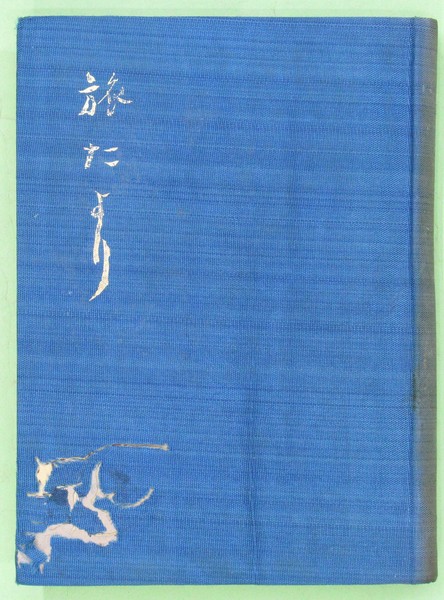 旅だより